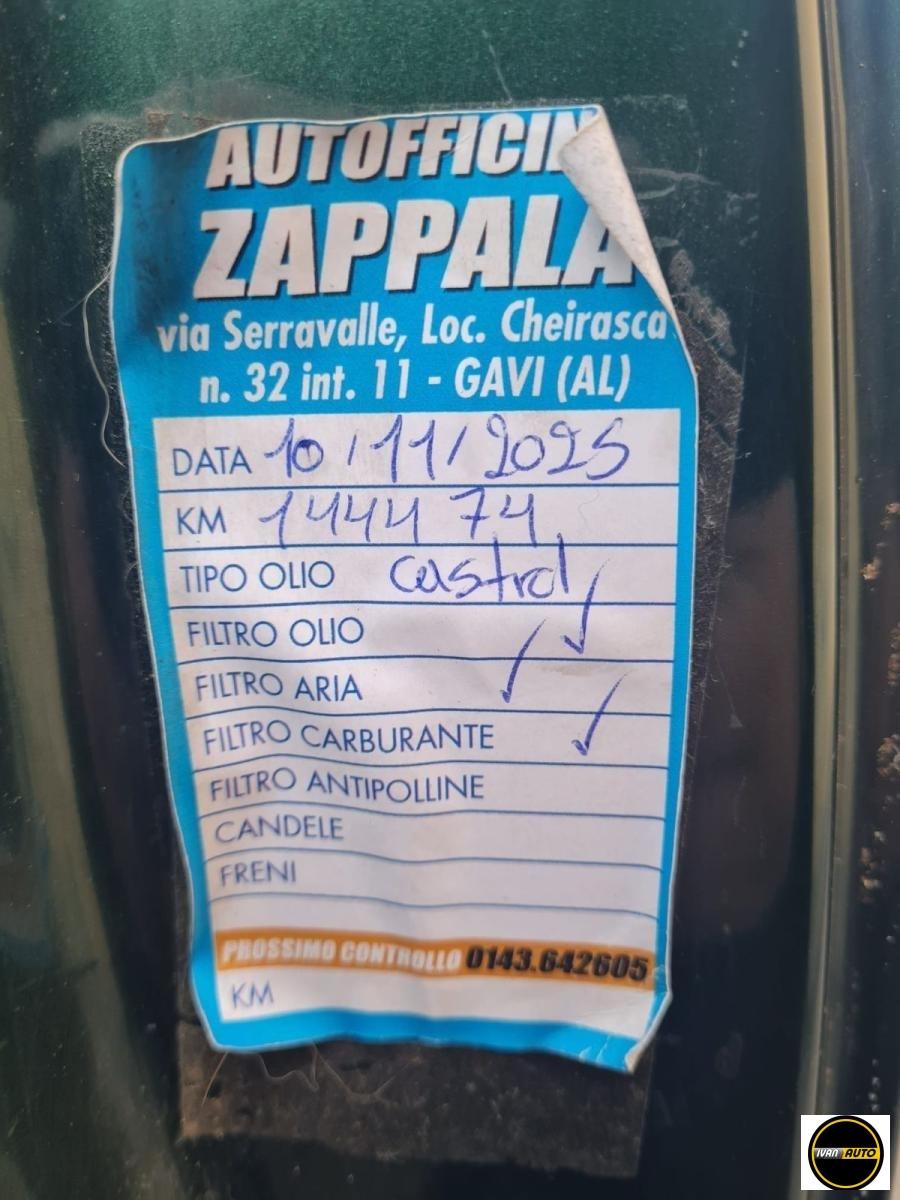 AUTOFFICIN
ZAPPALA
via Serravalle, Loc. Cheirasca
n. 32 int. 11 - GAVI (AL)
DATA 10/11/2025
KM 144474
TIPO OLIO castrol
FILTRO OLIO ✓
FILTRO ARIA ✓
FILTRO CARBURANTE ✓
FILTRO ANTIPOLLINE
CANDELE
FRENI
PROSSIMO CONTROLLO 0143.642605
KM
IVAN AUTO